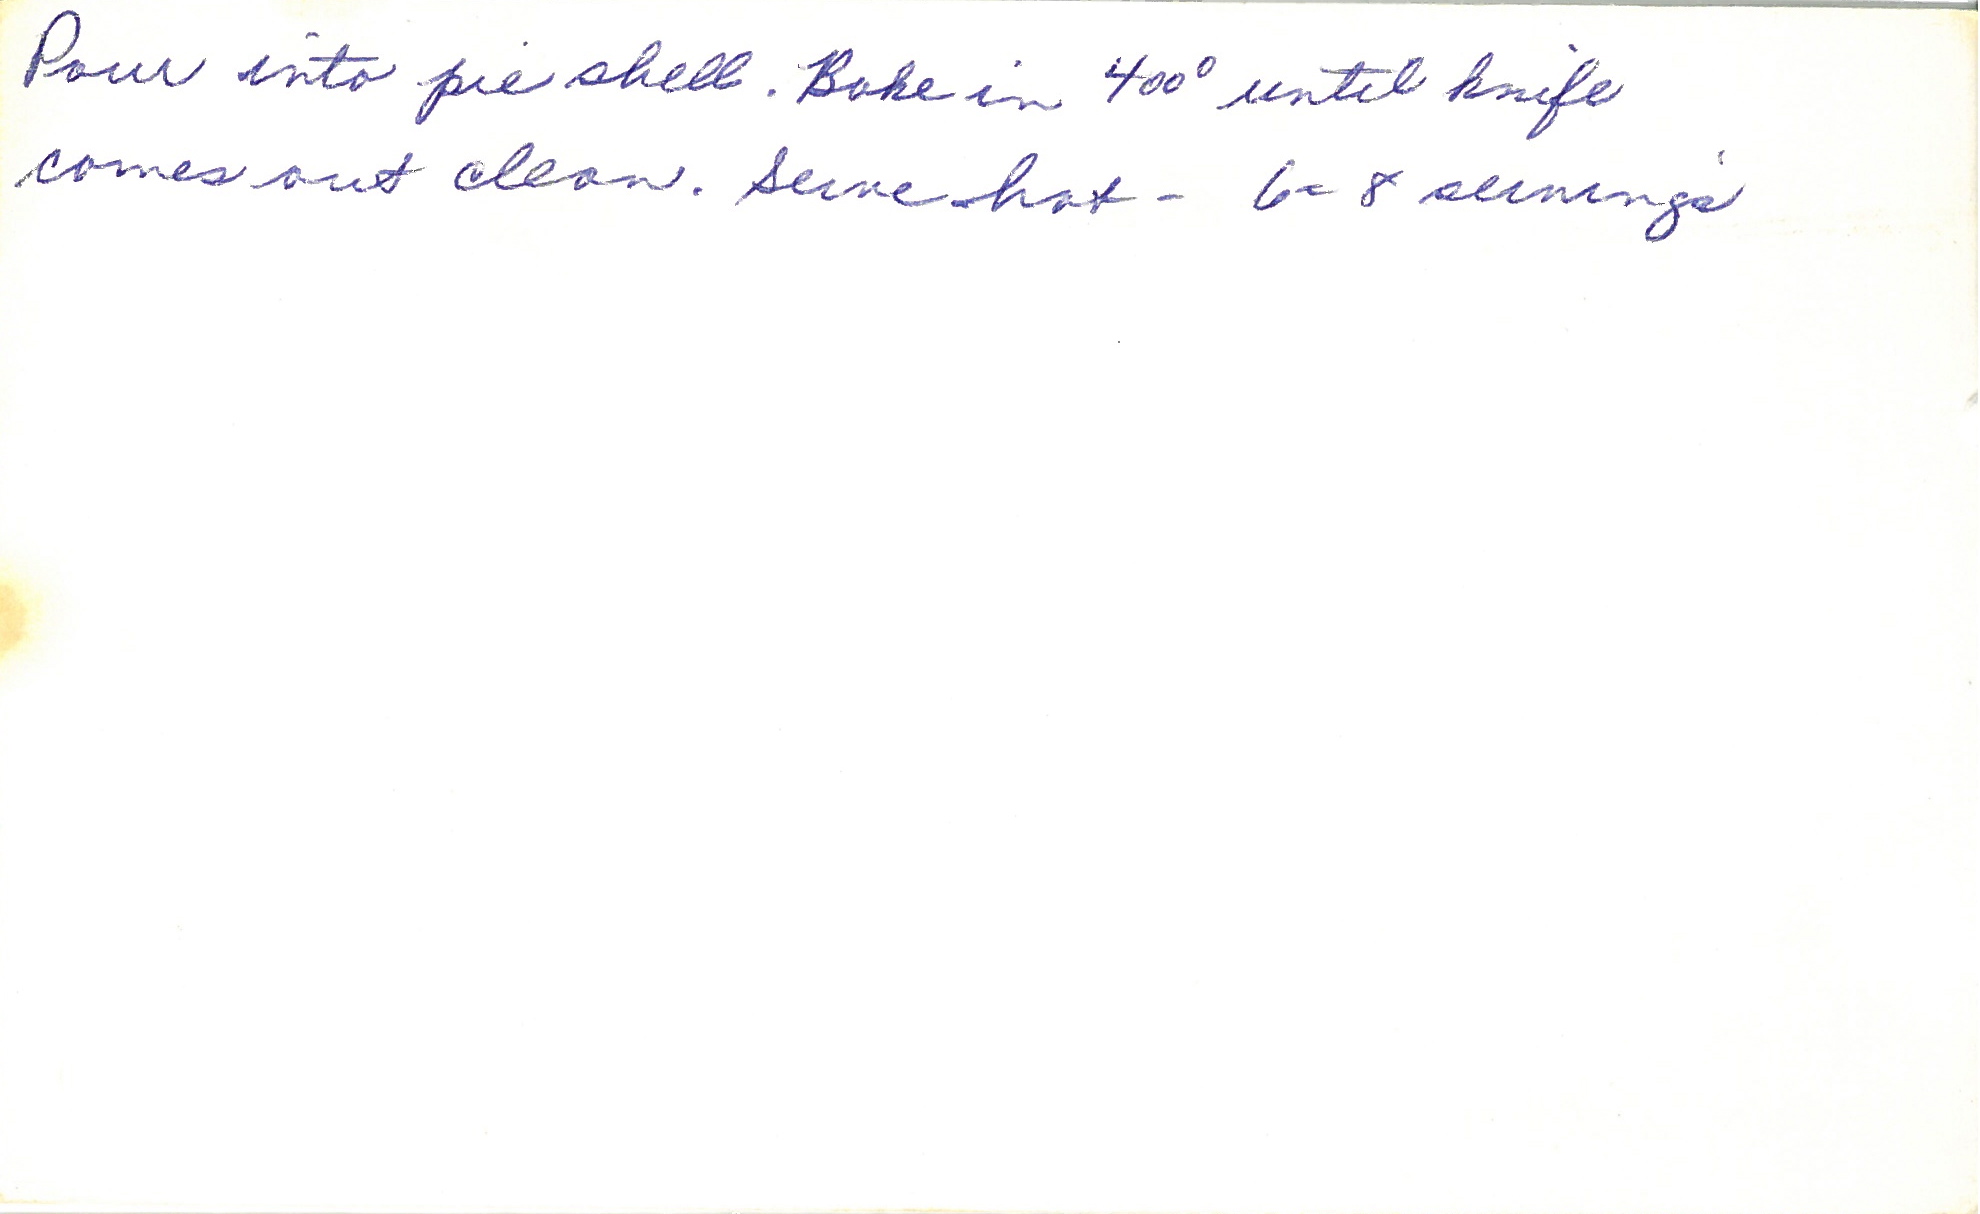 Pour into pie shell. Bake in 400° until knife
comes out clean. Serve hot - 6-8 servings